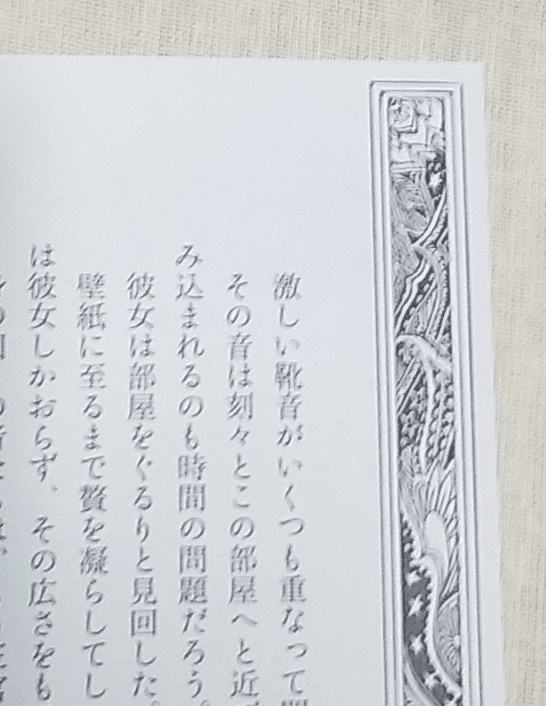 激しい靴音がいくつも重なって
その音は刻々とこの部屋へと近
み込まれるのも時間の問題だろう。
彼女は部屋をぐるりと見回した。
壁紙に至るまで贅を凝らしてし
は彼女しかおらず、その広さをも